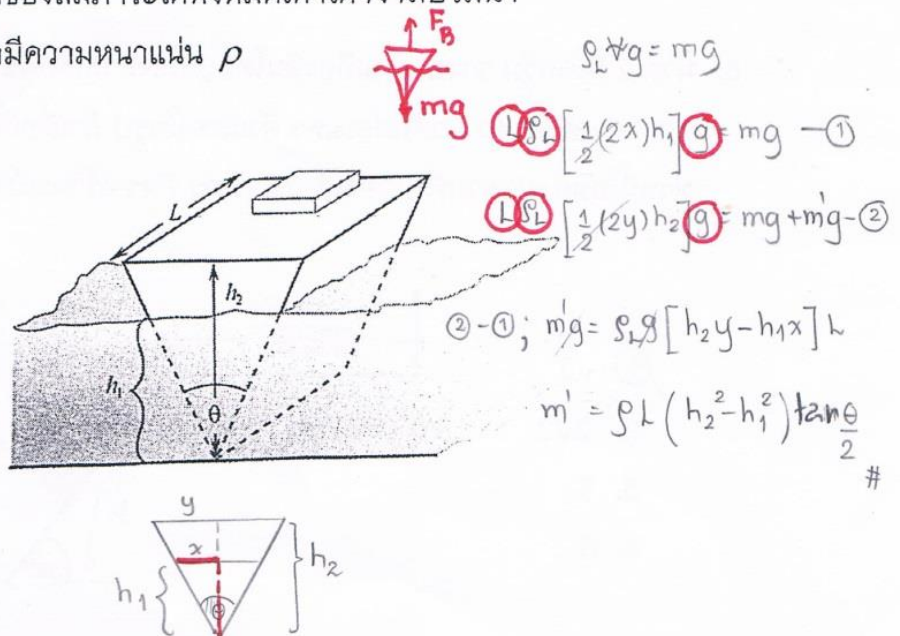 มีความหนาแน่น ρ
F_B
mg
ρ_L V g = mg
L ρ_L [ 1/2 (2x) h₁ ] g = mg —①
L ρ_L [ 1/2 (2y) h₂ ] g = mg + m'g —②
② - ① ; m'g = ρ_L g [ h₂y - h₁x ] L
m' = ρ L ( h₂² - h₁² ) tan θ/2
#
L
h₂
h₁
θ
y
x
h₂
h₁
θ